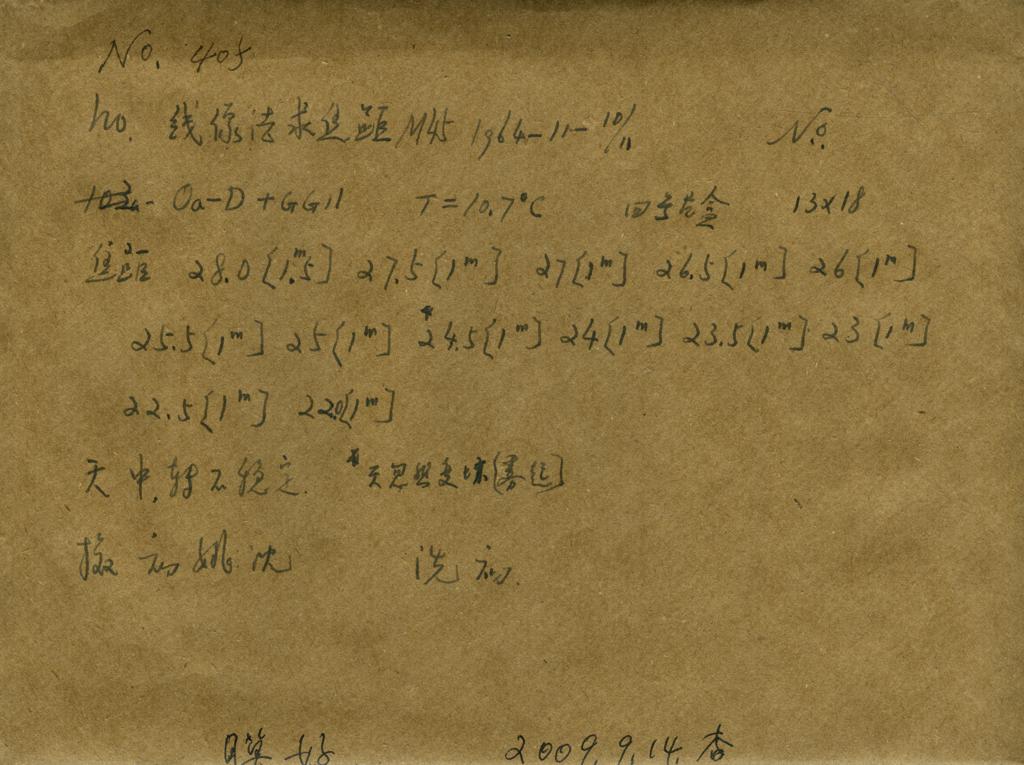 No. 405
no. 线像法求焦距 M45 1964-11-10/11 No.
Oa-D+GG11 T=10.7°C 四号片盒 13x18
焦距 28.0[1.ᵐ5] 27.5[1ᵐ] 27[1ᵐ] 26.5[1ᵐ] 26[1ᵐ]
25.5[1ᵐ] 25[1ᵐ] *24.5[1ᵐ] 24[1ᵐ] 23.5[1ᵐ] 23[1ᵐ]
22.5[1ᵐ] 22.0[1ᵐ]
天中,转不稳定. *天思照变坏[雾起]
摄 初 姚 沈 洗 初.
好 2009.9.14. 杏